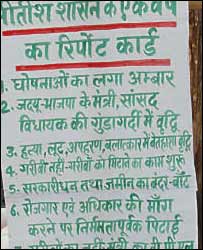 नीतीश शासन के एक वर्ष
का रिपोर्ट कार्ड
1. घोषनाओं का लगा अम्बार
2. जदयू-भाजपा के मंत्री, सांसद
विधायक की गुंडागर्दी में वृद्धि
3. हत्या, लूट, अपहरण, बलात्कार में बेतहाशा वृद्धि
4. गरीबी नहीं-गरीबों को मिटाने का काम शुरू
5. सरकारी धन तथा जमीन का बंदर-बाँट
6. रोजगार एवं अधिकार की माँग
करने पर निर्ममतापूर्वक पिटाई